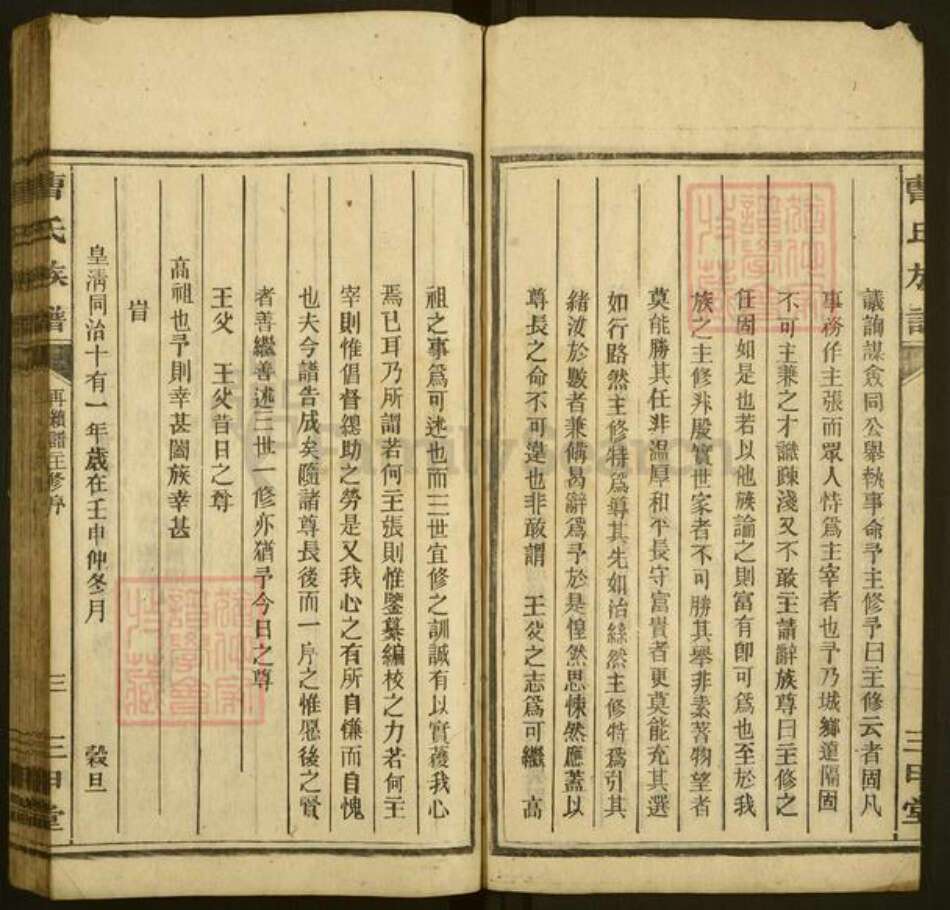 曹氏族譜
議詢謀僉同公舉執事命予主修予曰主修云者固凡
事務作主張而眾人恃為主宰者也予乃城鄉遠隔固
不可主兼之才識疎淺又不敢主請辭族尊曰主修之
任固如是也若以他族論之則富有卽可為也至於我
族之主修非殷實世家者不可勝其舉非素著物望者
莫能勝其任非溫厚和平長守富貴者更莫能充其選
如行路然主修特為導其先如治絲然主修特為引其
緒汝於數者兼備曷辭為予於是惶然思悚然應蓋以
尊長之命不可違也非敢謂 王父之志為可繼 高
祖之事為可述也而三世宜修之訓誠有以實獲我心
焉已耳乃所謂若何主張則惟鑒纂編校之力若何主
宰則惟倡督襄助之勞是又我心之有所自慊而自愧
也夫今譜告成矣隨諸尊長後而一序之惟愿後之賢
者善繼善述三世一修亦猶予今日之尊
王父 王父昔日之尊
高祖也予則幸甚闔族幸甚
旹
皇清同治十有一年歲在壬申仲冬月 穀旦
曹氏族譜 再續譜主修序 三